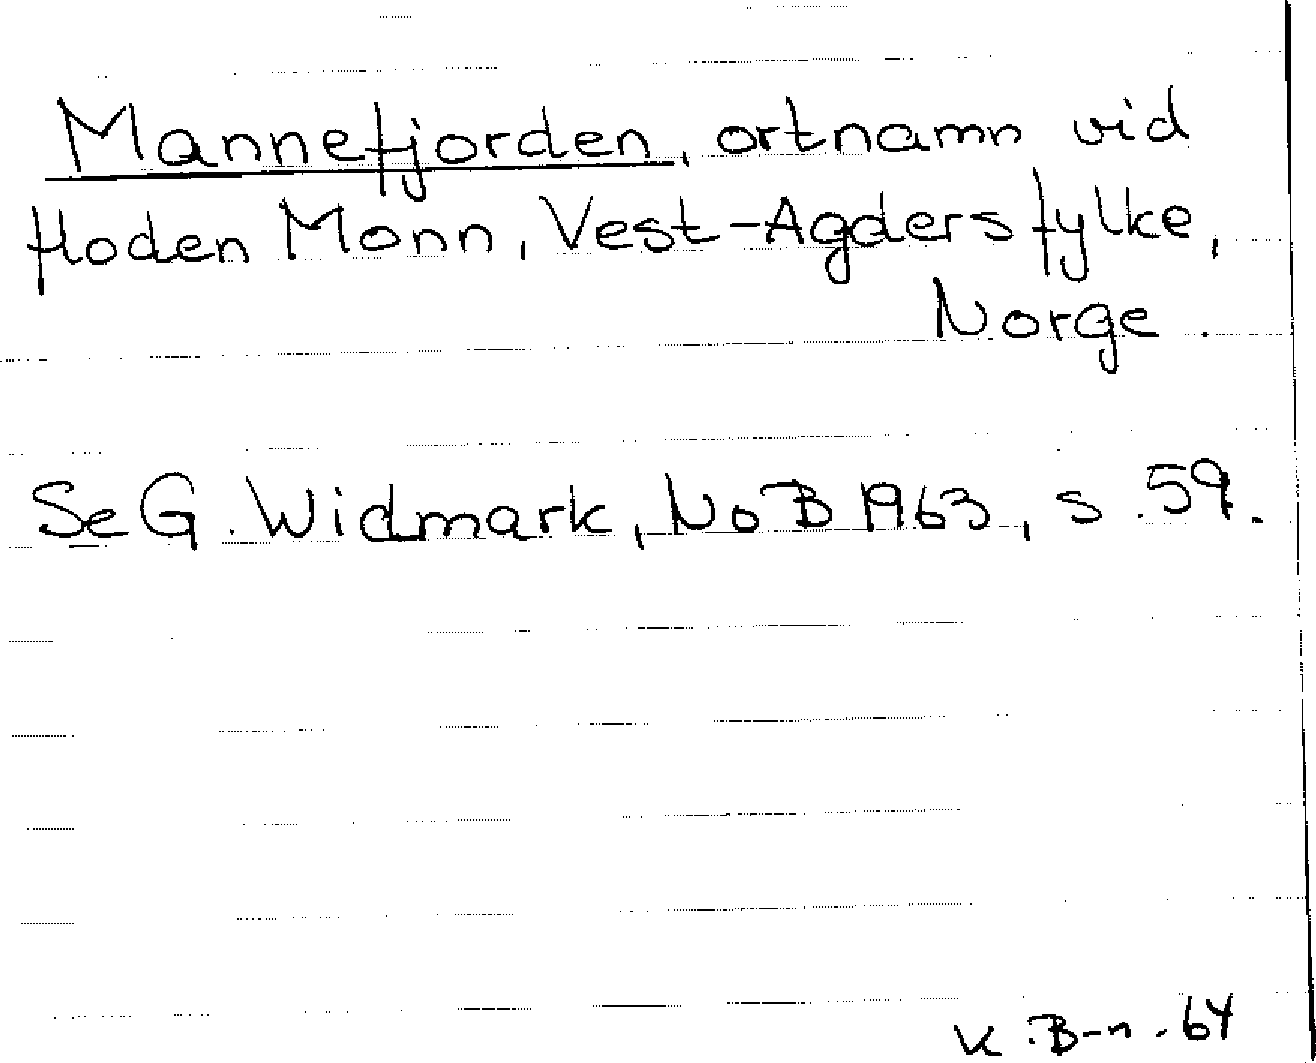 Mannefjorden, ortnamn vid
floden Monn, Vest-Agders fylke,
Norge.
Se G. Widmark, NoB 1963, s. 59.
K. B-n. 64